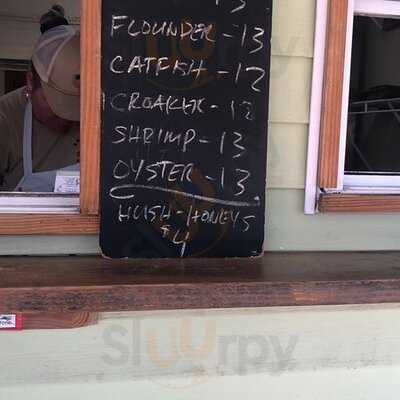 13
FLOUNDER - 13
CATFISH - 12
CROAKER - 12
SHRIMP - 13
OYSTER - 13
HUSH-HONEYS
$4
sluurpy